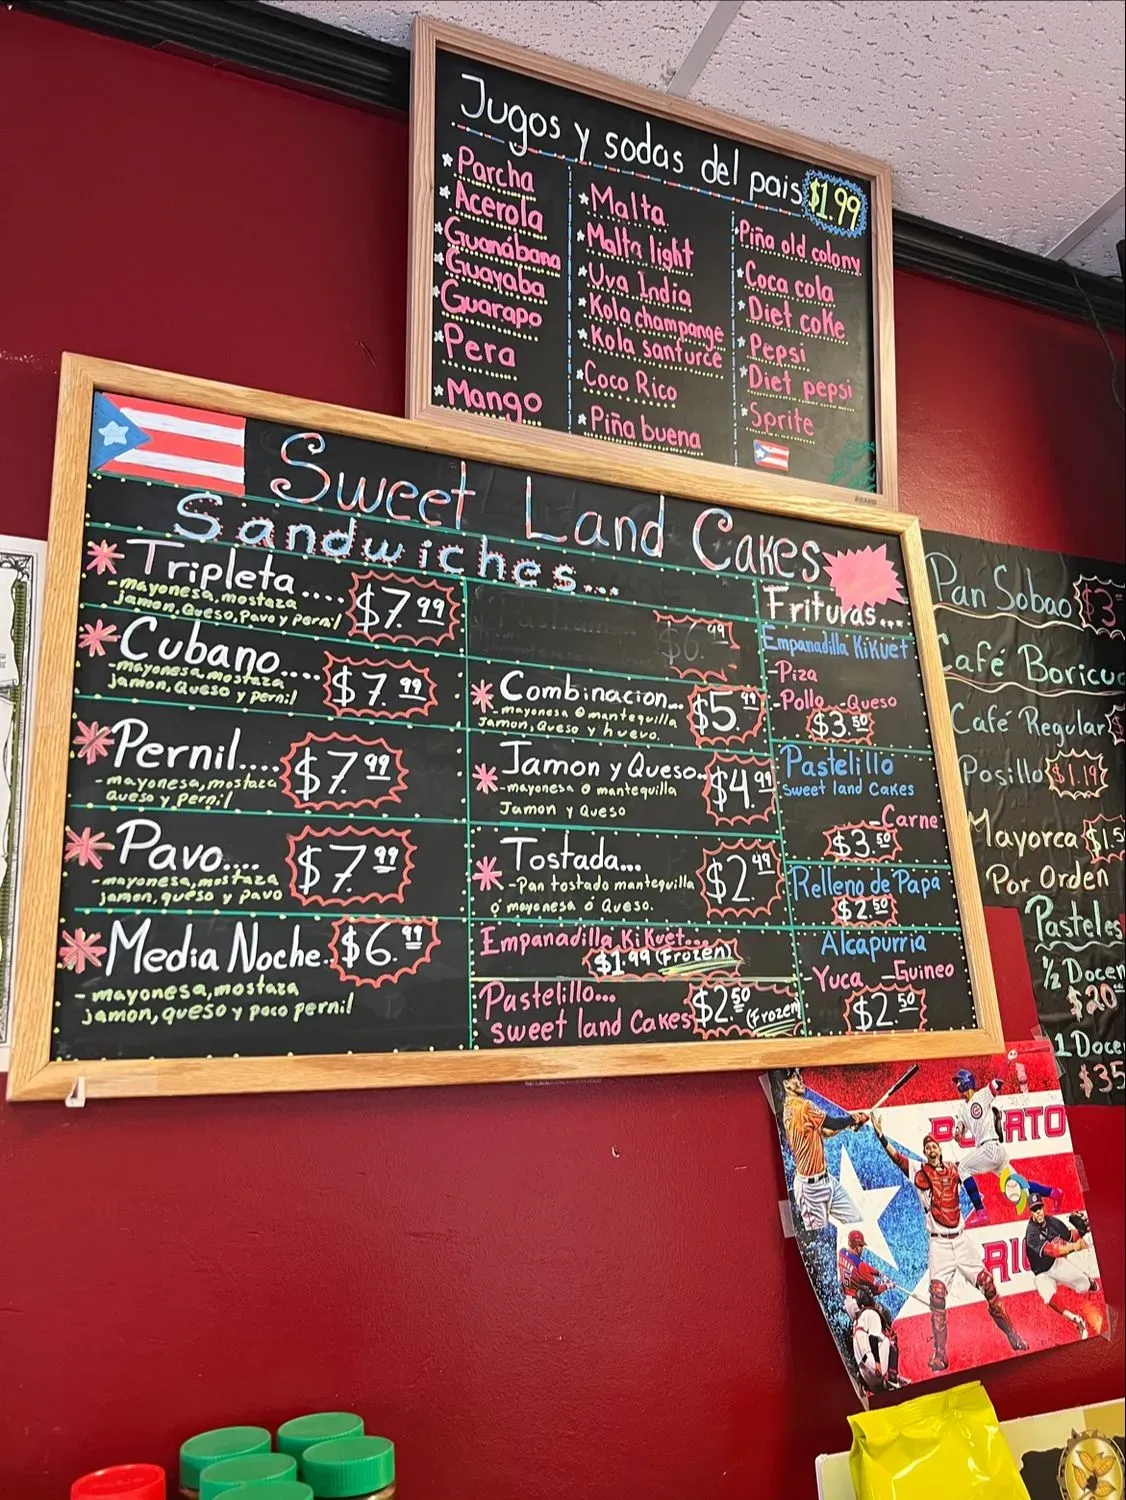 Jugos y sodas del pais $1.99
*Parcha
*Acerola
*Guanábana
*Guayaba
*Guarapo
*Pera
*Mango
*Malta
*Malta light
*Uva India
*Kola champange
*Kola santurce
*Coco Rico
*Piña buena
*Piña old colony
*Coca cola
*Diet coke
*Pepsi
*Diet pepsi
*Sprite
Sweet Land Cakes
Sandwiches...
*Tripleta.... $7.99
-mayonesa, mostaza
jamon, Queso, Pavo y pernil
*Cubano.... $7.99
-mayonesa, mostaza
jamon, Queso y pernil
*Pernil.... $7.99
-mayonesa, mostaza
Queso y pernil
*Pavo.... $7.99
-mayonesa, mostaza
jamon, queso y pavo
*Media Noche. $6.99
-mayonesa, mostaza
jamon, queso y poco pernil
$6.99
*Combinacion... $5.99
-mayonesa o mantequilla
Jamon, Queso y huevo.
*Jamon y Queso... $4.99
-mayonesa o mantequilla
Jamon y Queso
*Tostada... $2.49
-Pan tostado mantequilla
ó mayonesa ó Queso.
Empanadilla KiKuet...
$1.99 (Frozen)
Pastelillo...
sweet land Cakes $2.50 (Frozen)
Frituras...
Empanadilla KiKuet
-Piza
-Pollo -Queso
$3.50
Pastelillo
sweet land Cakes
-Carne
$3.50
Relleno de Papa
$2.50
Alcapurria
-Yuca -Guineo
$2.50
Pan Sobao $3
Café Boricua
Café Regular $
Posillo $1.19
Mayorca $1.5
Por Orden
Pasteles
1/2 Docen
$20
1 Doce
$35
RTO
RI